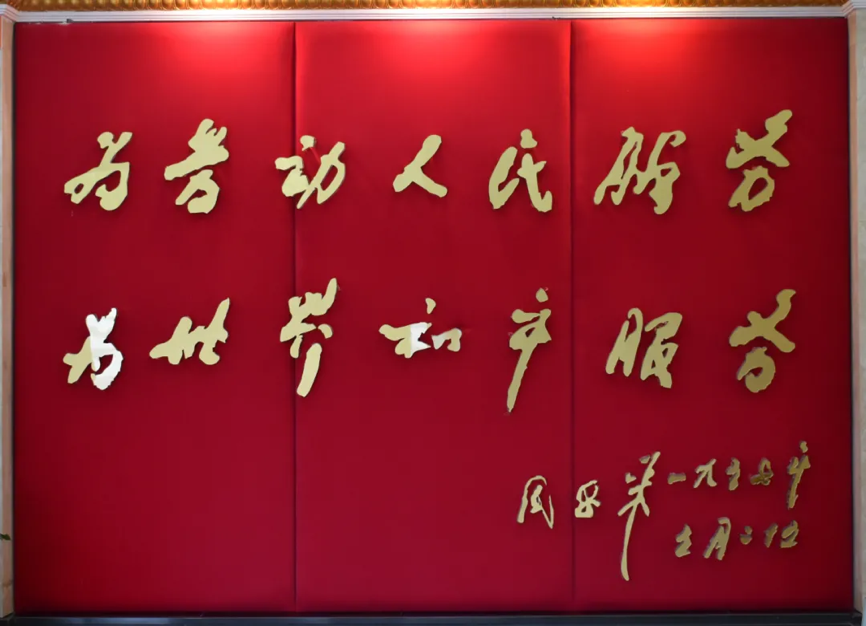 为劳动人民服务
为世界和平服务
周恩来 一九五年
月二